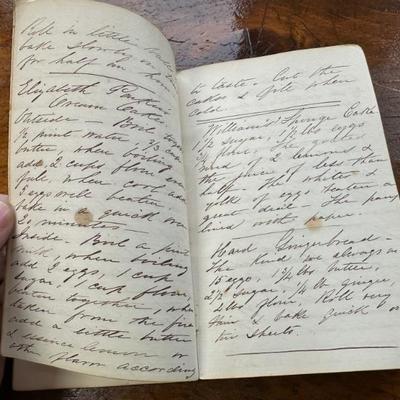 Roll in little
bake slowly in
for half an hour
Elizabeth
Cream Cakes
Outside – Boil together
½ pint water 2/3 cup
butter when boiling
add 2 cups flour
when cool add
5 eggs well beaten
bake in a quick oven
minutes
Inside. Boil a pint
milk, when boiling
add 2 eggs, 1 cup
sugar, 1 cup flour,
beaten together, when
taken from the fire
add a little butter
& essence lemon or
other flavor according
to taste. Cut the
cakes & fill when
cold.
William's Sponge Cake
1½ sugar, 1½ lbs eggs
¾ flour the grated
rind of 2 lemons &
the juice of less than
half. The whites &
yolk of eggs beaten a
great deal. The pans
lined with paper.
Hard Gingerbread –
The kind we always
15 eggs, 1¾ lbs butter,
2½ sugar, ¼ lb ginger,
4 lbs flour, Roll very
thin & bake quick
tin sheets.